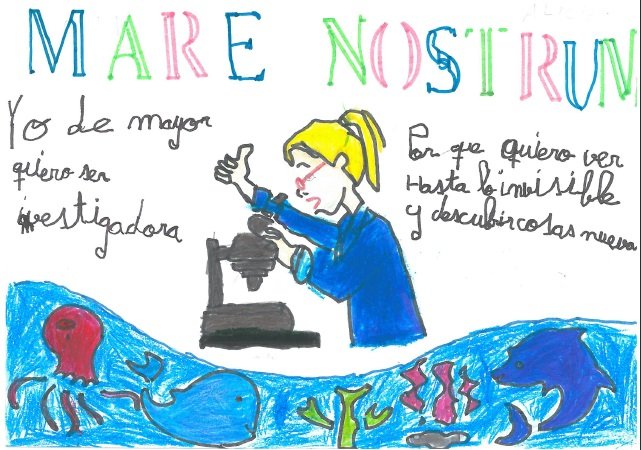 MARE NOSTRUN
Yo de mayor
quiero ser
investigadora
Por que quiero ver
Hasta lo invisible
y descubir cosas nueva